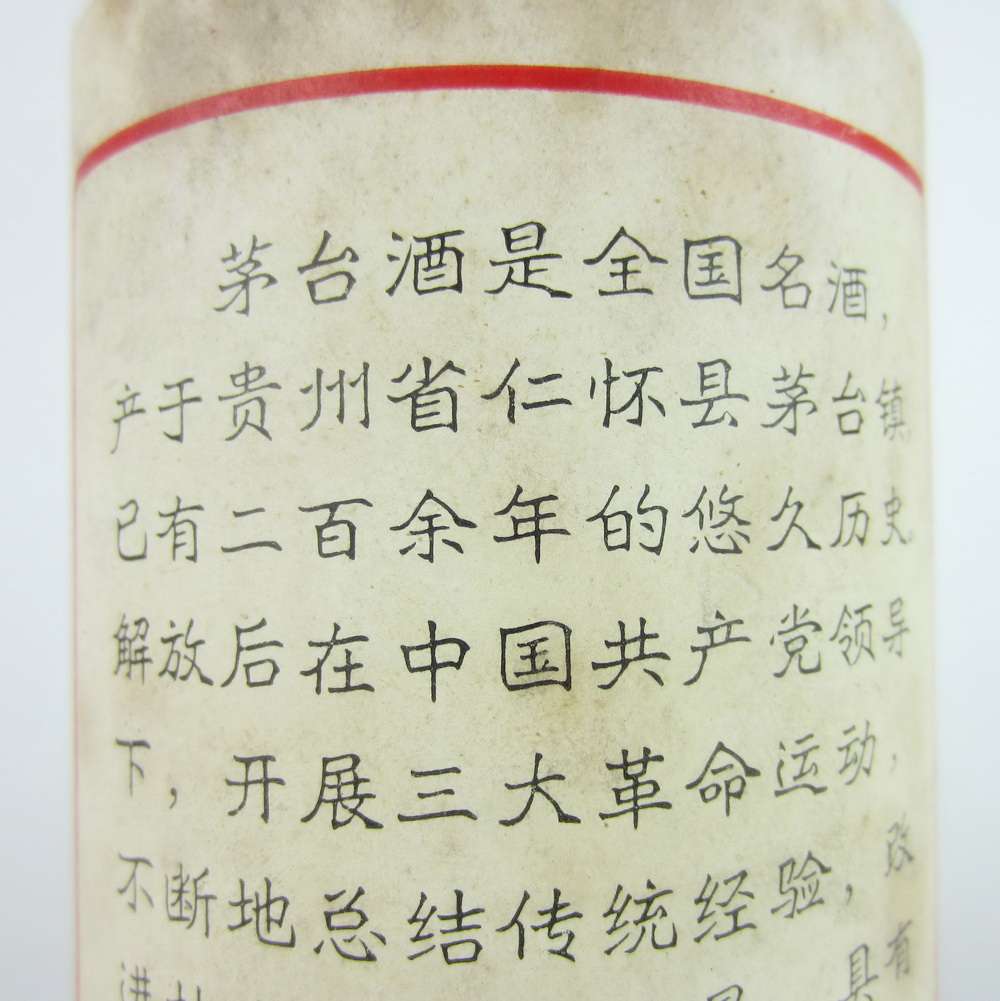 茅台酒是全国名酒，
产于贵州省仁怀县茅台镇
已有二百余年的悠久历史
解放后在中国共产党领导
下，开展三大革命运动，
不断地总结传统经验，改
进 具有